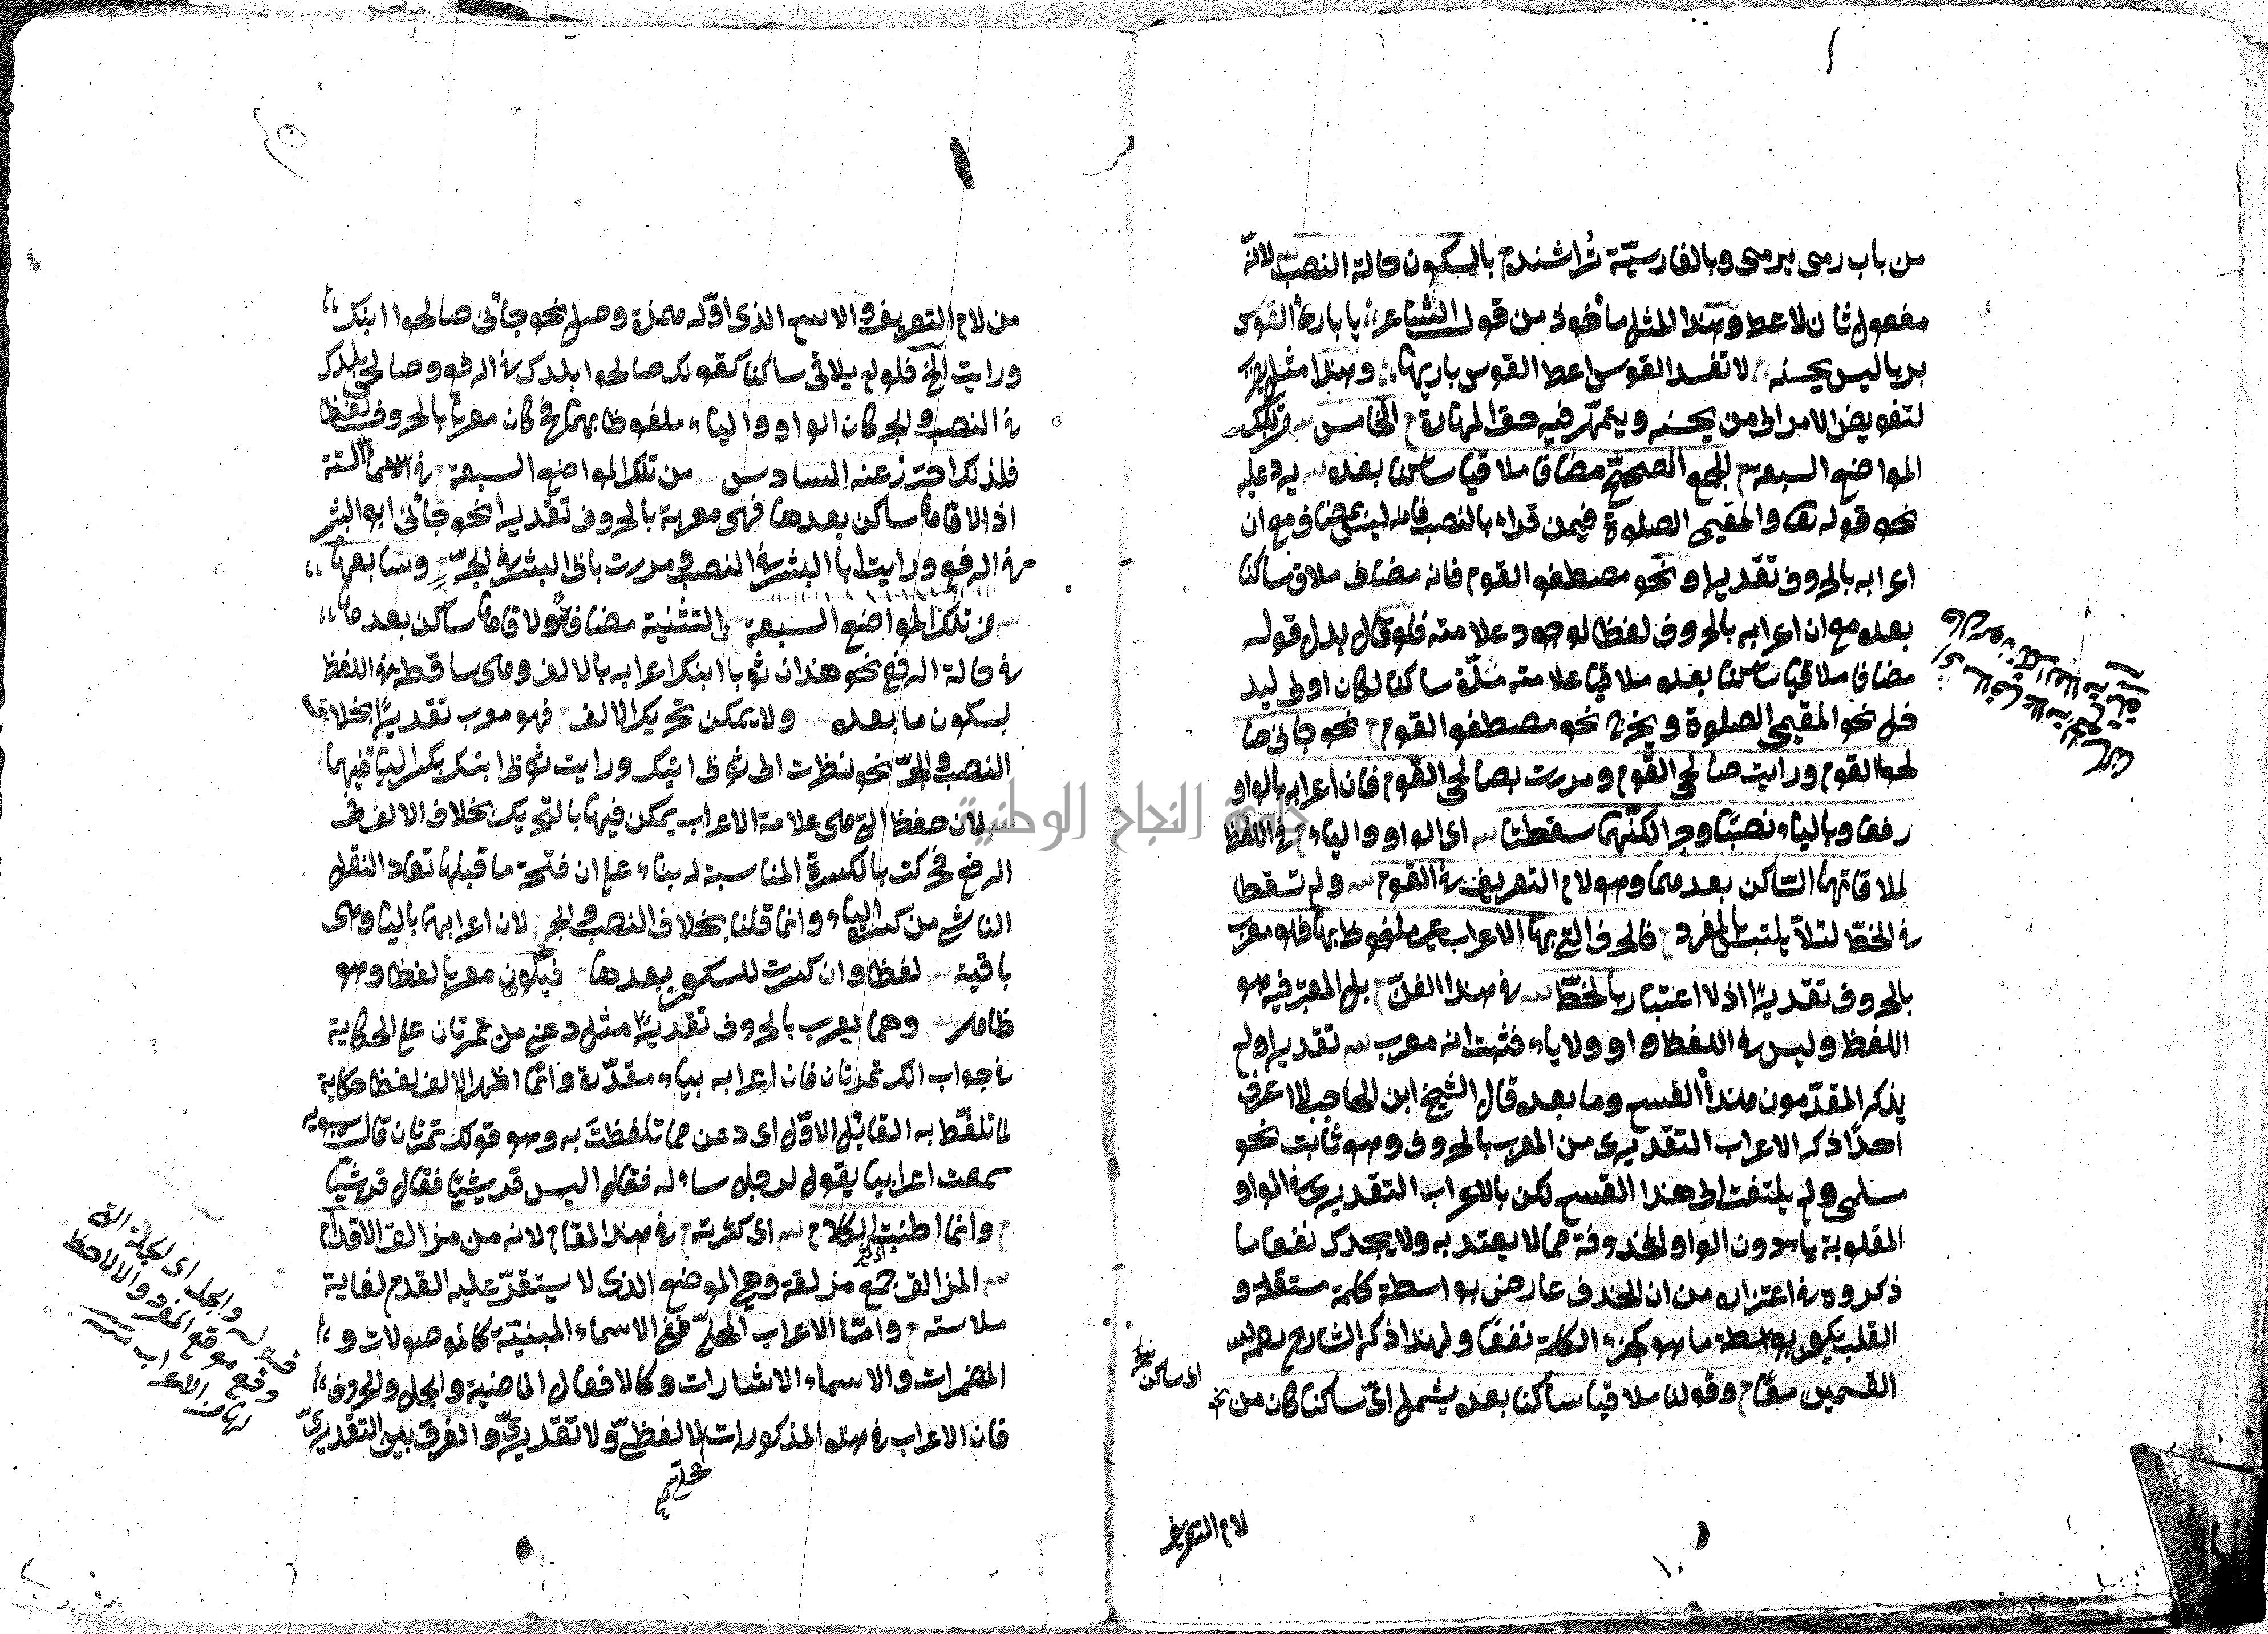 من باب رمى يرمى وبالفارسيّة تُراشندم بالسكون حالة النصب لانّه
مفعول ثان لاعط وهذا المثل مأخوذ من قول الشاعر يا بارئ القوس
بريا ليس يحسنه لا تفسد القوس اعط القوس باريها وهذا مثل يضرب
لتفويض الامر الى من يحسنه ويتمهّر فيه حق المهارة الخامس من تلك
المواضع السبعة الجمع الصحيح مضافا ملاقيا ساكنا بعده يرد عليه
نحو قوله تعا والمقيمى الصلوة فيمن قراء بالنصب فانه ليس بمضاف مع ان
اعرابه بالحروف تقديرا ونحو مصطفو القوم فانه مضاف ملاق ساكنا
بعده مع ان اعرابه بالحروف لفظا لوجود علامته فلو قال بدل قوله
مضافا ملاقيا ساكنا بعده ملاقيا علامته مدّة ساكنا لكان اولى ليد
خل نحو المقيمى الصلوة ويخرج نحو مصطفو القوم نحو جائنى صا
لحوا القوم ورايت صالحى القوم ومررت بصالحى القوم فان اعرابه بالواو
رفعا وبالياء نصبًا وجرا لكنّهما سقطتا اى الواو والياء فى اللفظ
لملاقاتهما السّاكن بعدهما وهو لام التعريف فى القوم ولم تسقطا
فى الخطّ لئلا يلتبس بالمفرد فالحرف التى بها الاعراب غير ملفوظ بها فهو معرب
بالحروف تقديرًا اذ لا اعتبار بالخطّ فى هذا الفنّ بل المعتبر فيه هو
اللفظ وليس فى اللفظ واو ولا ياء فثبت انه معرب تقديرا ولم
يذكر المقدّمون هذا القسم وما بعده قال الشيخ ابن الحاجب لا اعرف
احدًا ذكر الاعراب التقديرى من المعرب بالحروف وهو ثابت نحو
مسلمى ولم يلتفت الى هذا القسم لكن بالاعراب التقديرى فى الواو
المقلوبة ياء دون الواو المحذوفة مما لا يعتد به ولا يجدك نفعا ما
ذكروه فى اعتزاره من ان الحذف عارض بواسطة كلمة مستقلة و
القلب يكون بواسطة ما هو كجزء الكلمة نفعًا ولهذا ذكر الشارح رحمه الله
القسمين معًا وقولنا ملاقيا ساكنا بعده يشمل اىّ ساكنا كان من نحو
اى ساكن
لام التعريف
من لام التعريف والاسم الذى اوّله همزة وصل نحو جائنى صالحوا ابنك
ورايت الخ فلو لم يلاقى ساكنا كقولك صالحوا بلدك فى الرفع وصالحى بلدك
فى النصب والجر كان الواو والياء ملفوظا بهما فح كان معربا بالحروف لفظا
فلذلك احترز عنه السادس من تلك المواضع السبعة فى الاسماء الستة
اذا لاقاها ساكن بعدها فهى معربة بالحروف تقديرا نحو جائنى ابو البشر
فى الرفع ورايت ابا البشر فى النصب ومررت بابى البشر فى الجرّ وسابعها
من تلك المواضع السبعة التثنية مضافة ولاقاها ساكن بعدها
فى حالة الرفع نحو هذان ثوبا ابنك اعرابه بالالف وهى ساقطة فى اللفظ
لسكون ما بعده ولا يمكن تحريك الالف فهو معرب تقديرًا بخلاف
النصب والجرّ نحو نظرت الى ثوبى ابنك ورايت ثوبى ابنك بكسر الياء فيهما
لان حفظ التى هى علامة الاعراب يمكن فيها بالتحريك بخلاف الالف فى
الرفع فحركت بالكسرة المناسبة له بناء على ان فتحة ما قبلها تعاد الثقل
الناشى من كسر الياء وانما قلنا بخلاف النصب والجر لان اعرابهما بالياء وهى
باقية لفظا وان كسرت للسكون بعدها فيكون معربا لفظا وهو
ظاهر ومما يعرب بالحروف تقديرًا مثل دعنى من تمرتان على الحكاية
فى جواب الك تمرتان فان اعرابه بياء مقدّرة وانما اظهر الالف لفظا حكاية
لما تلفّظ به القائل الاوّل اى دعن مما تلفظتَ به وهو قولك تمرتان قال سيبويه
سمعت اعرابيا يقول لرجل ساءله فقال اليس قريشيًا فقال قريشيًا
وانما اطنبت الكلام اى كثرته فى هذا المقام لانه من مزالق الاقدام
المزالق جمع مزلقة وهى الموضع الذى لا يستقرّ عليه القدم لغاية
ملاسته وامّا الاعراب المحلىّ ففى الاسماء المبنيّة كالموصولات و
المضمرات والاسماء الاشارات وكالافعال الماضية والجمل والحروف
فان الاعراب فى هذه المذكورات لا لفظىّ ولا تقديرىّ والفرق بين التقديرىّ
قوله والجمل اى الجملة التى
وقع موقع المفرد والا لا حظ
لها من الاعراب
جامعة النجاح الوطنية